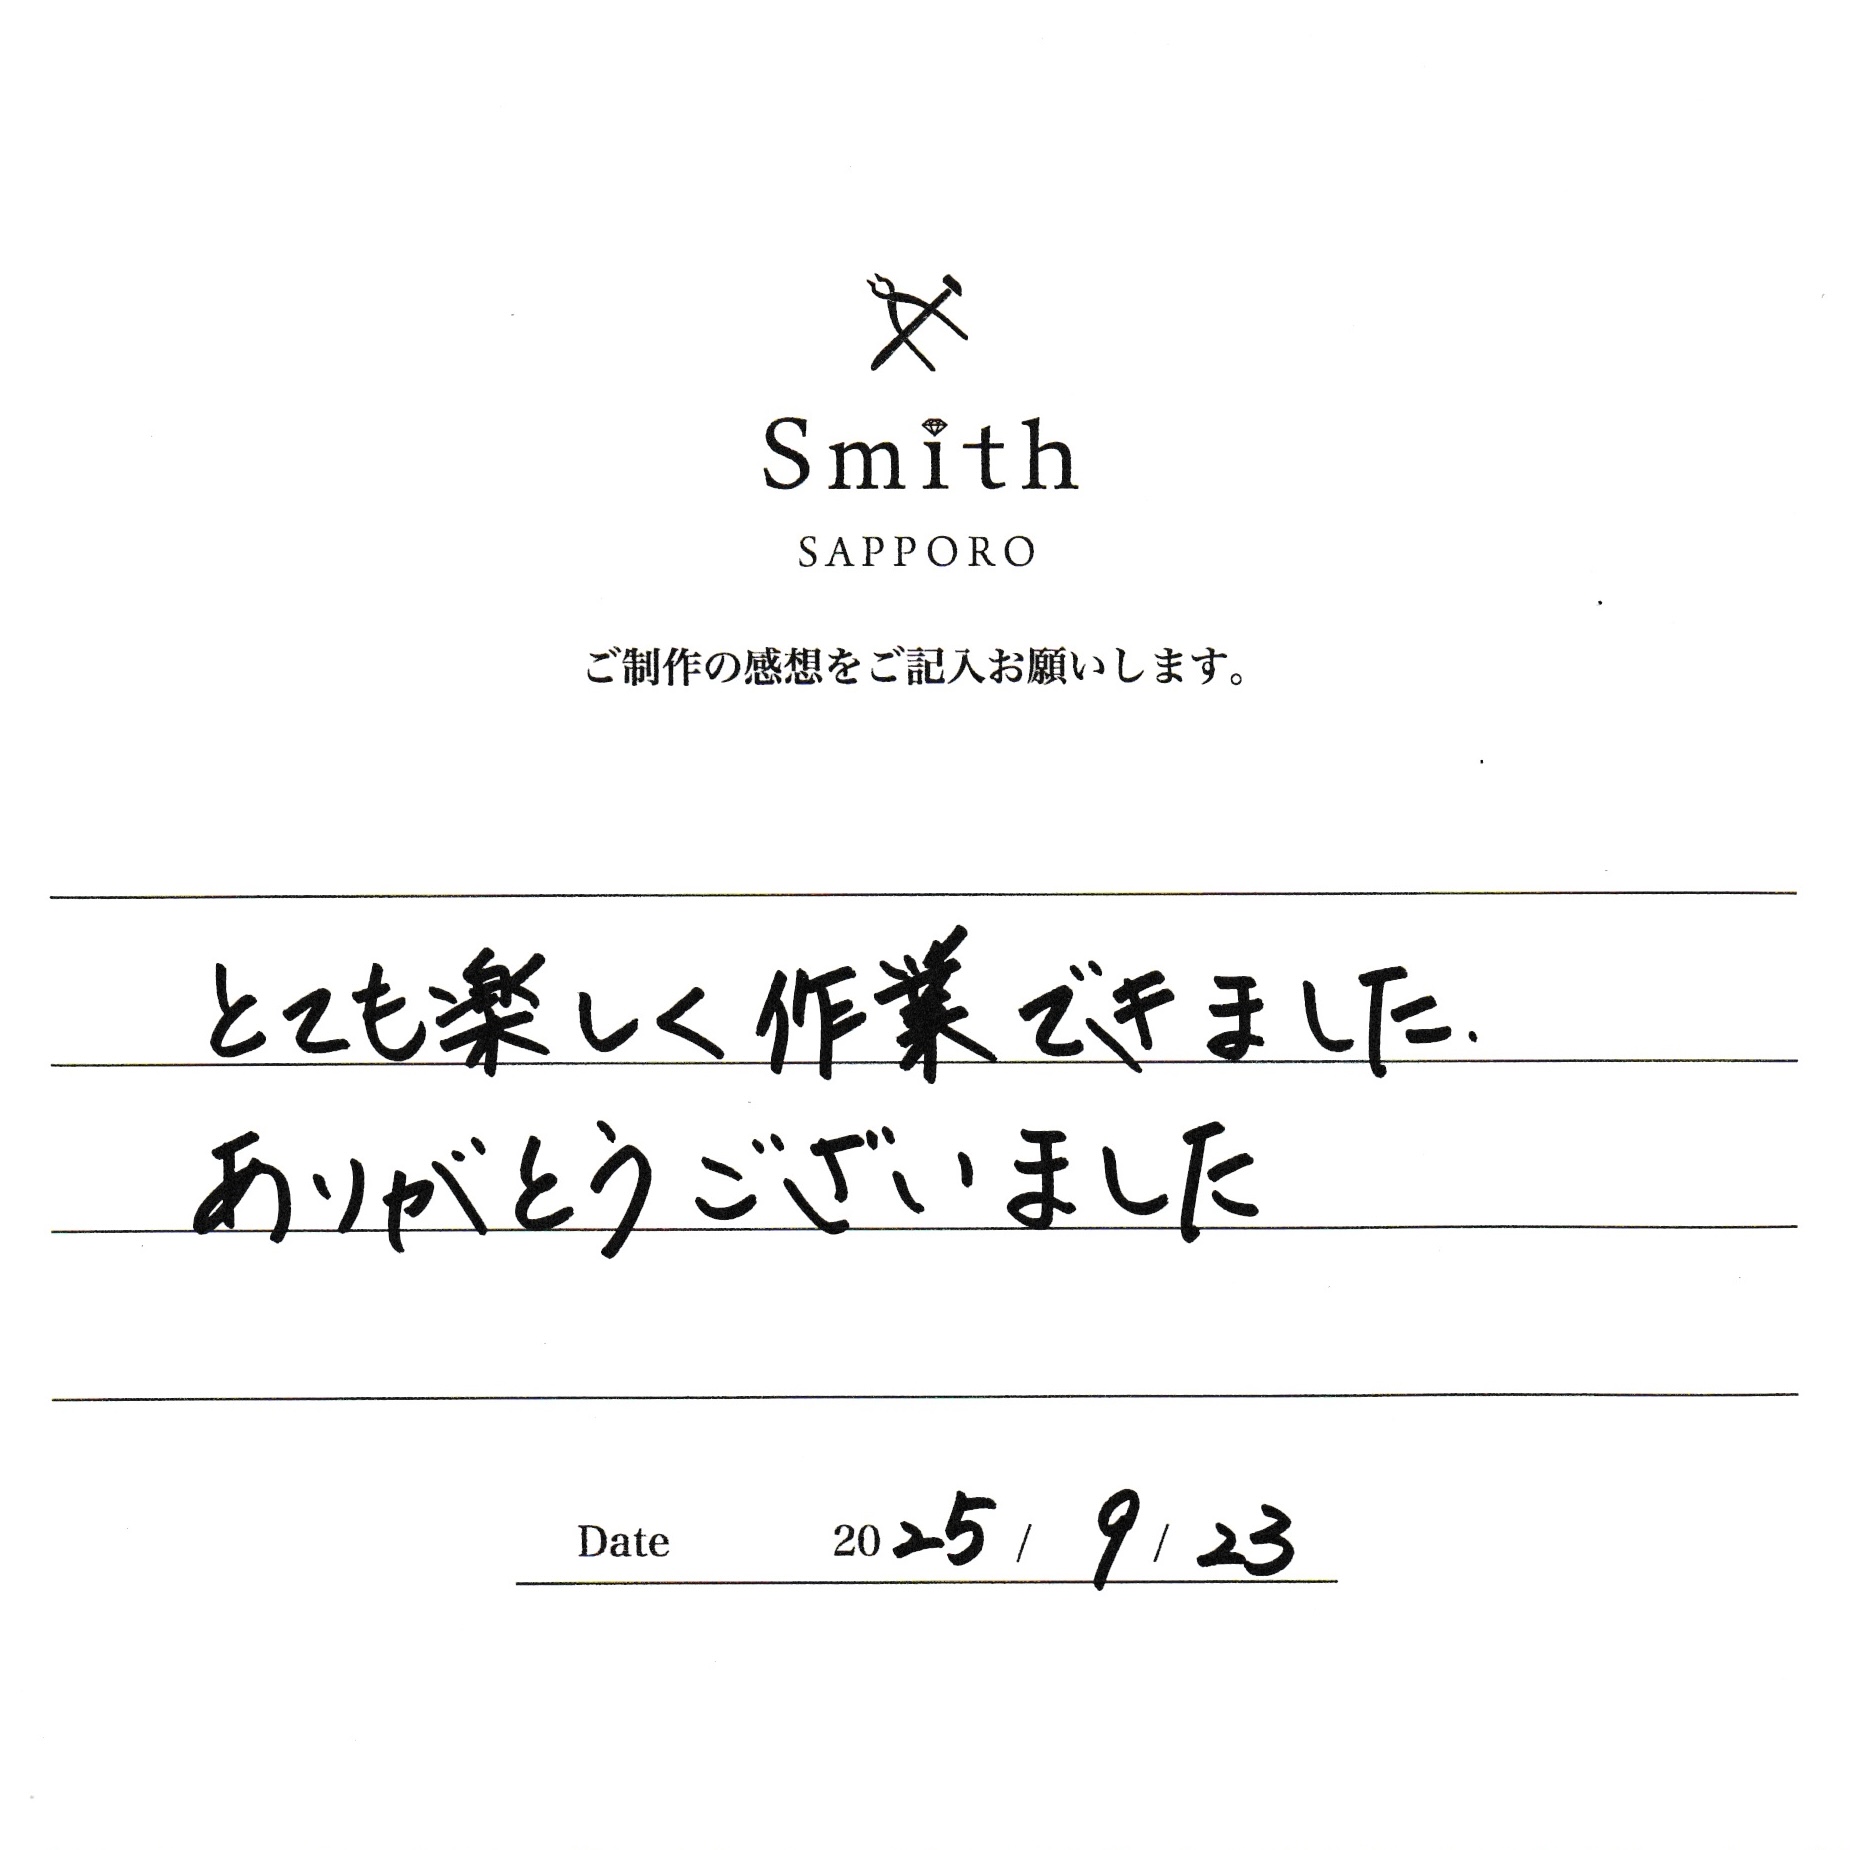 Smith
SAPPORO
ご制作の感想をご記入お願いします。
とても楽しく作業できました.
ありがとうございました
Date 2025 / 9 / 23